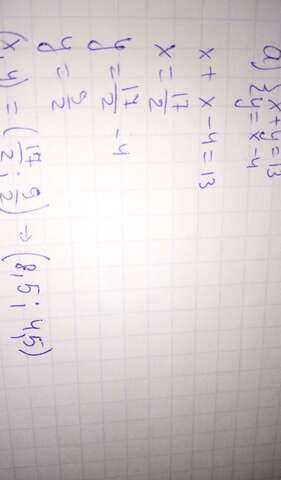 a) { x + y = 13
y = x - 4
x + x - 4 = 13
x = 17/2
y = 17/2 - 4
y = 9/2
(x, y) = (17/2 ; 9/2) => (8,5 ; 4,5)